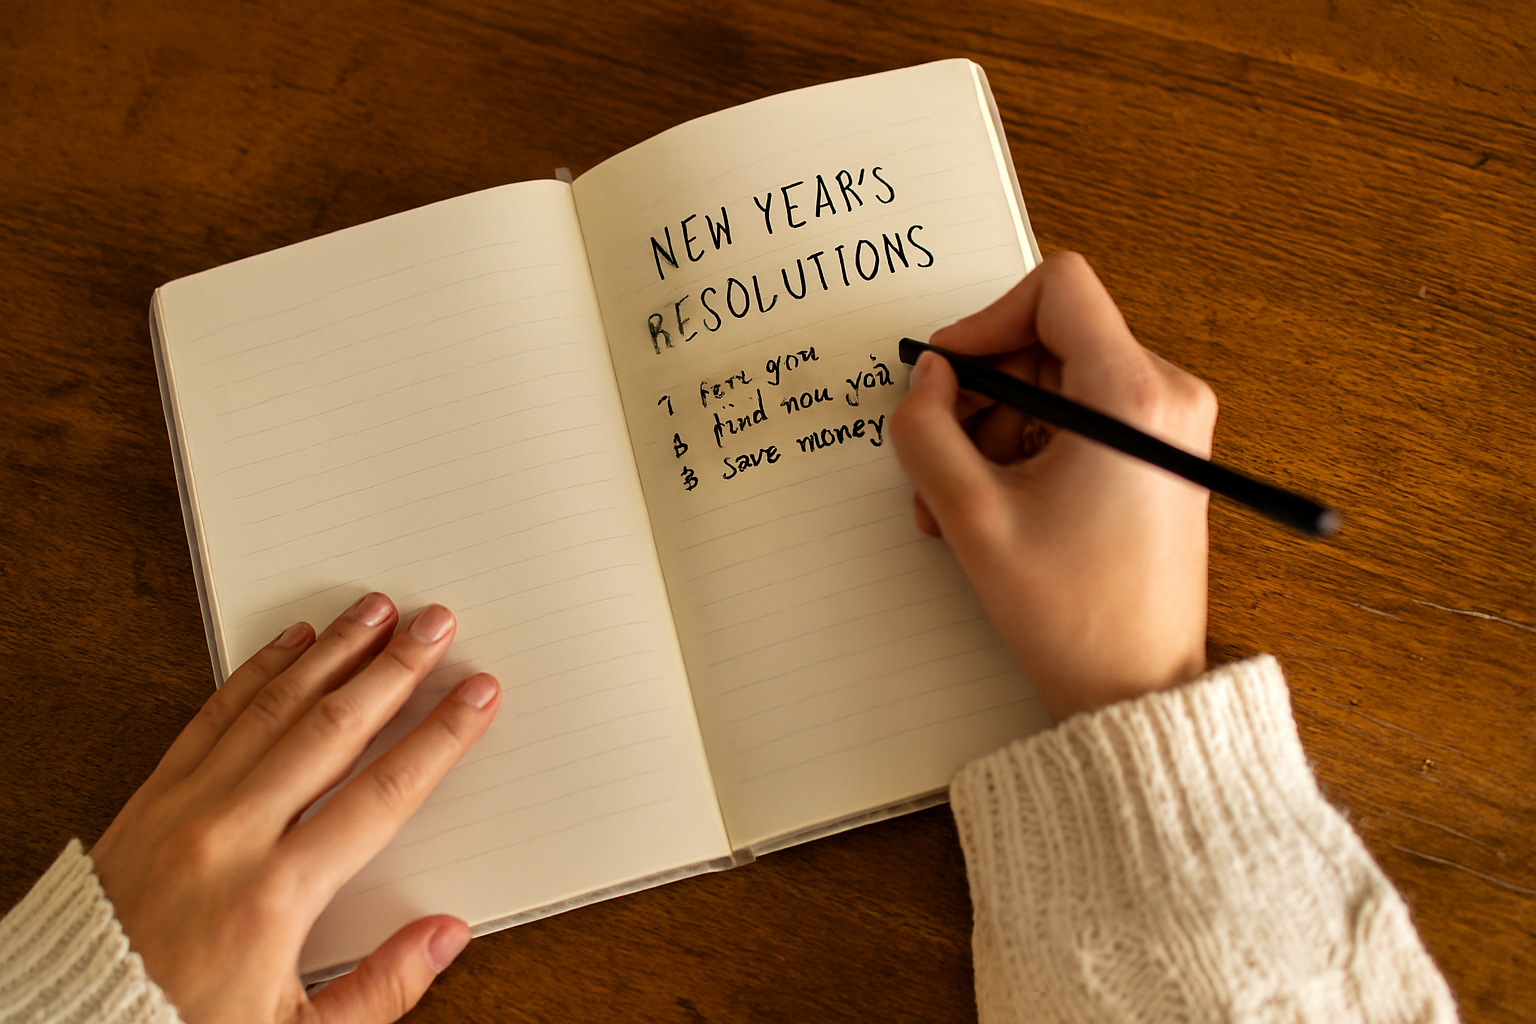 NEW YEAR'S
RESOLUTIONS
you
find nou you
save money